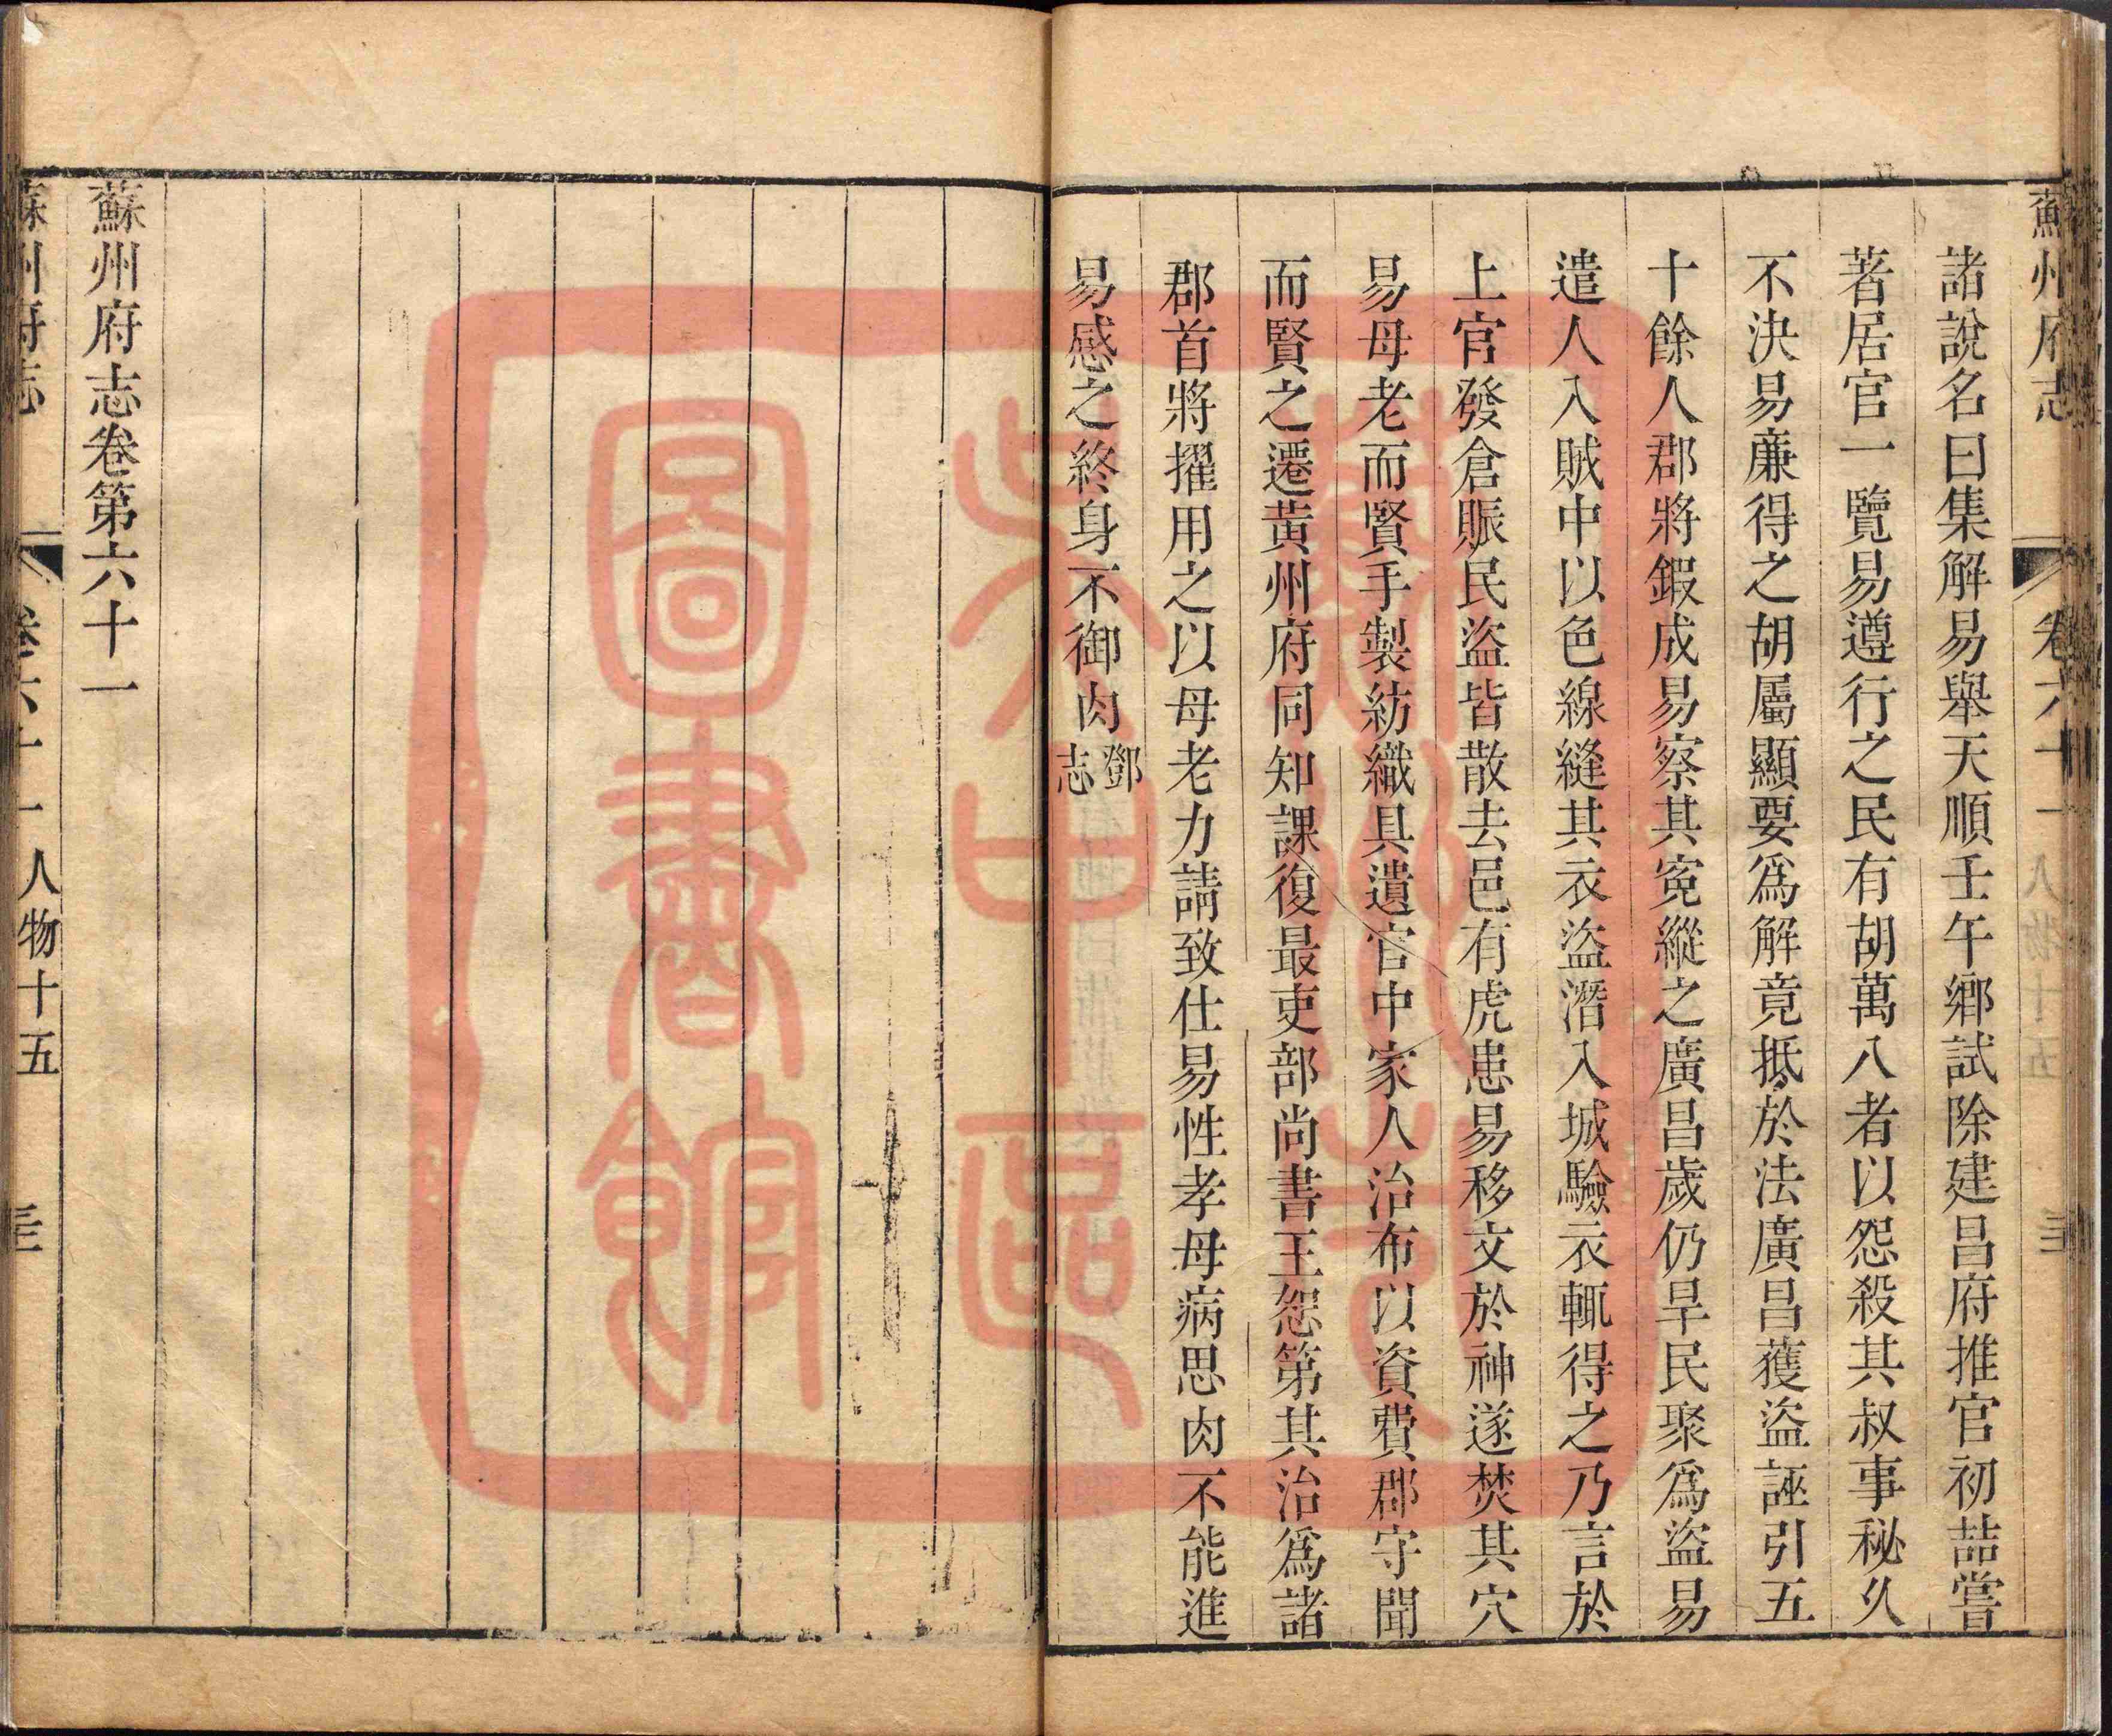 蘇州府志 卷六十一 人物十五
諸說名曰集解易舉天順壬午鄉試除建昌府推官初喆嘗
著居官一覽易遵行之民有胡萬八者以怨殺其叔事秘久
不決易廉得之胡屬顯要爲解竟抵於法廣昌獲盜誣引五
十餘人郡將鍜成易察其寃縱之廣昌歲仍旱民聚爲盜易
遣人入賊中以色線縫其衣盜潛入城驗衣輒得之乃言於
上官發倉賑民盜皆散去邑有虎患易移文於神遂焚其穴
易母老而賢手製紡織具遺官中家人治布以資費郡守聞
而賢之遷黃州府同知課復最吏部尚書王恕第其治爲諸
郡首將擢用之以母老力請致仕易性孝母病思肉不能進
易感之終身不御肉鄧志
蘇州府志卷第六十一
蘇州府志 卷六十一 人物十五
圖書館